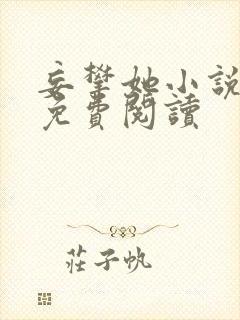 妄攀她小說
免費閱讀
莊子帆